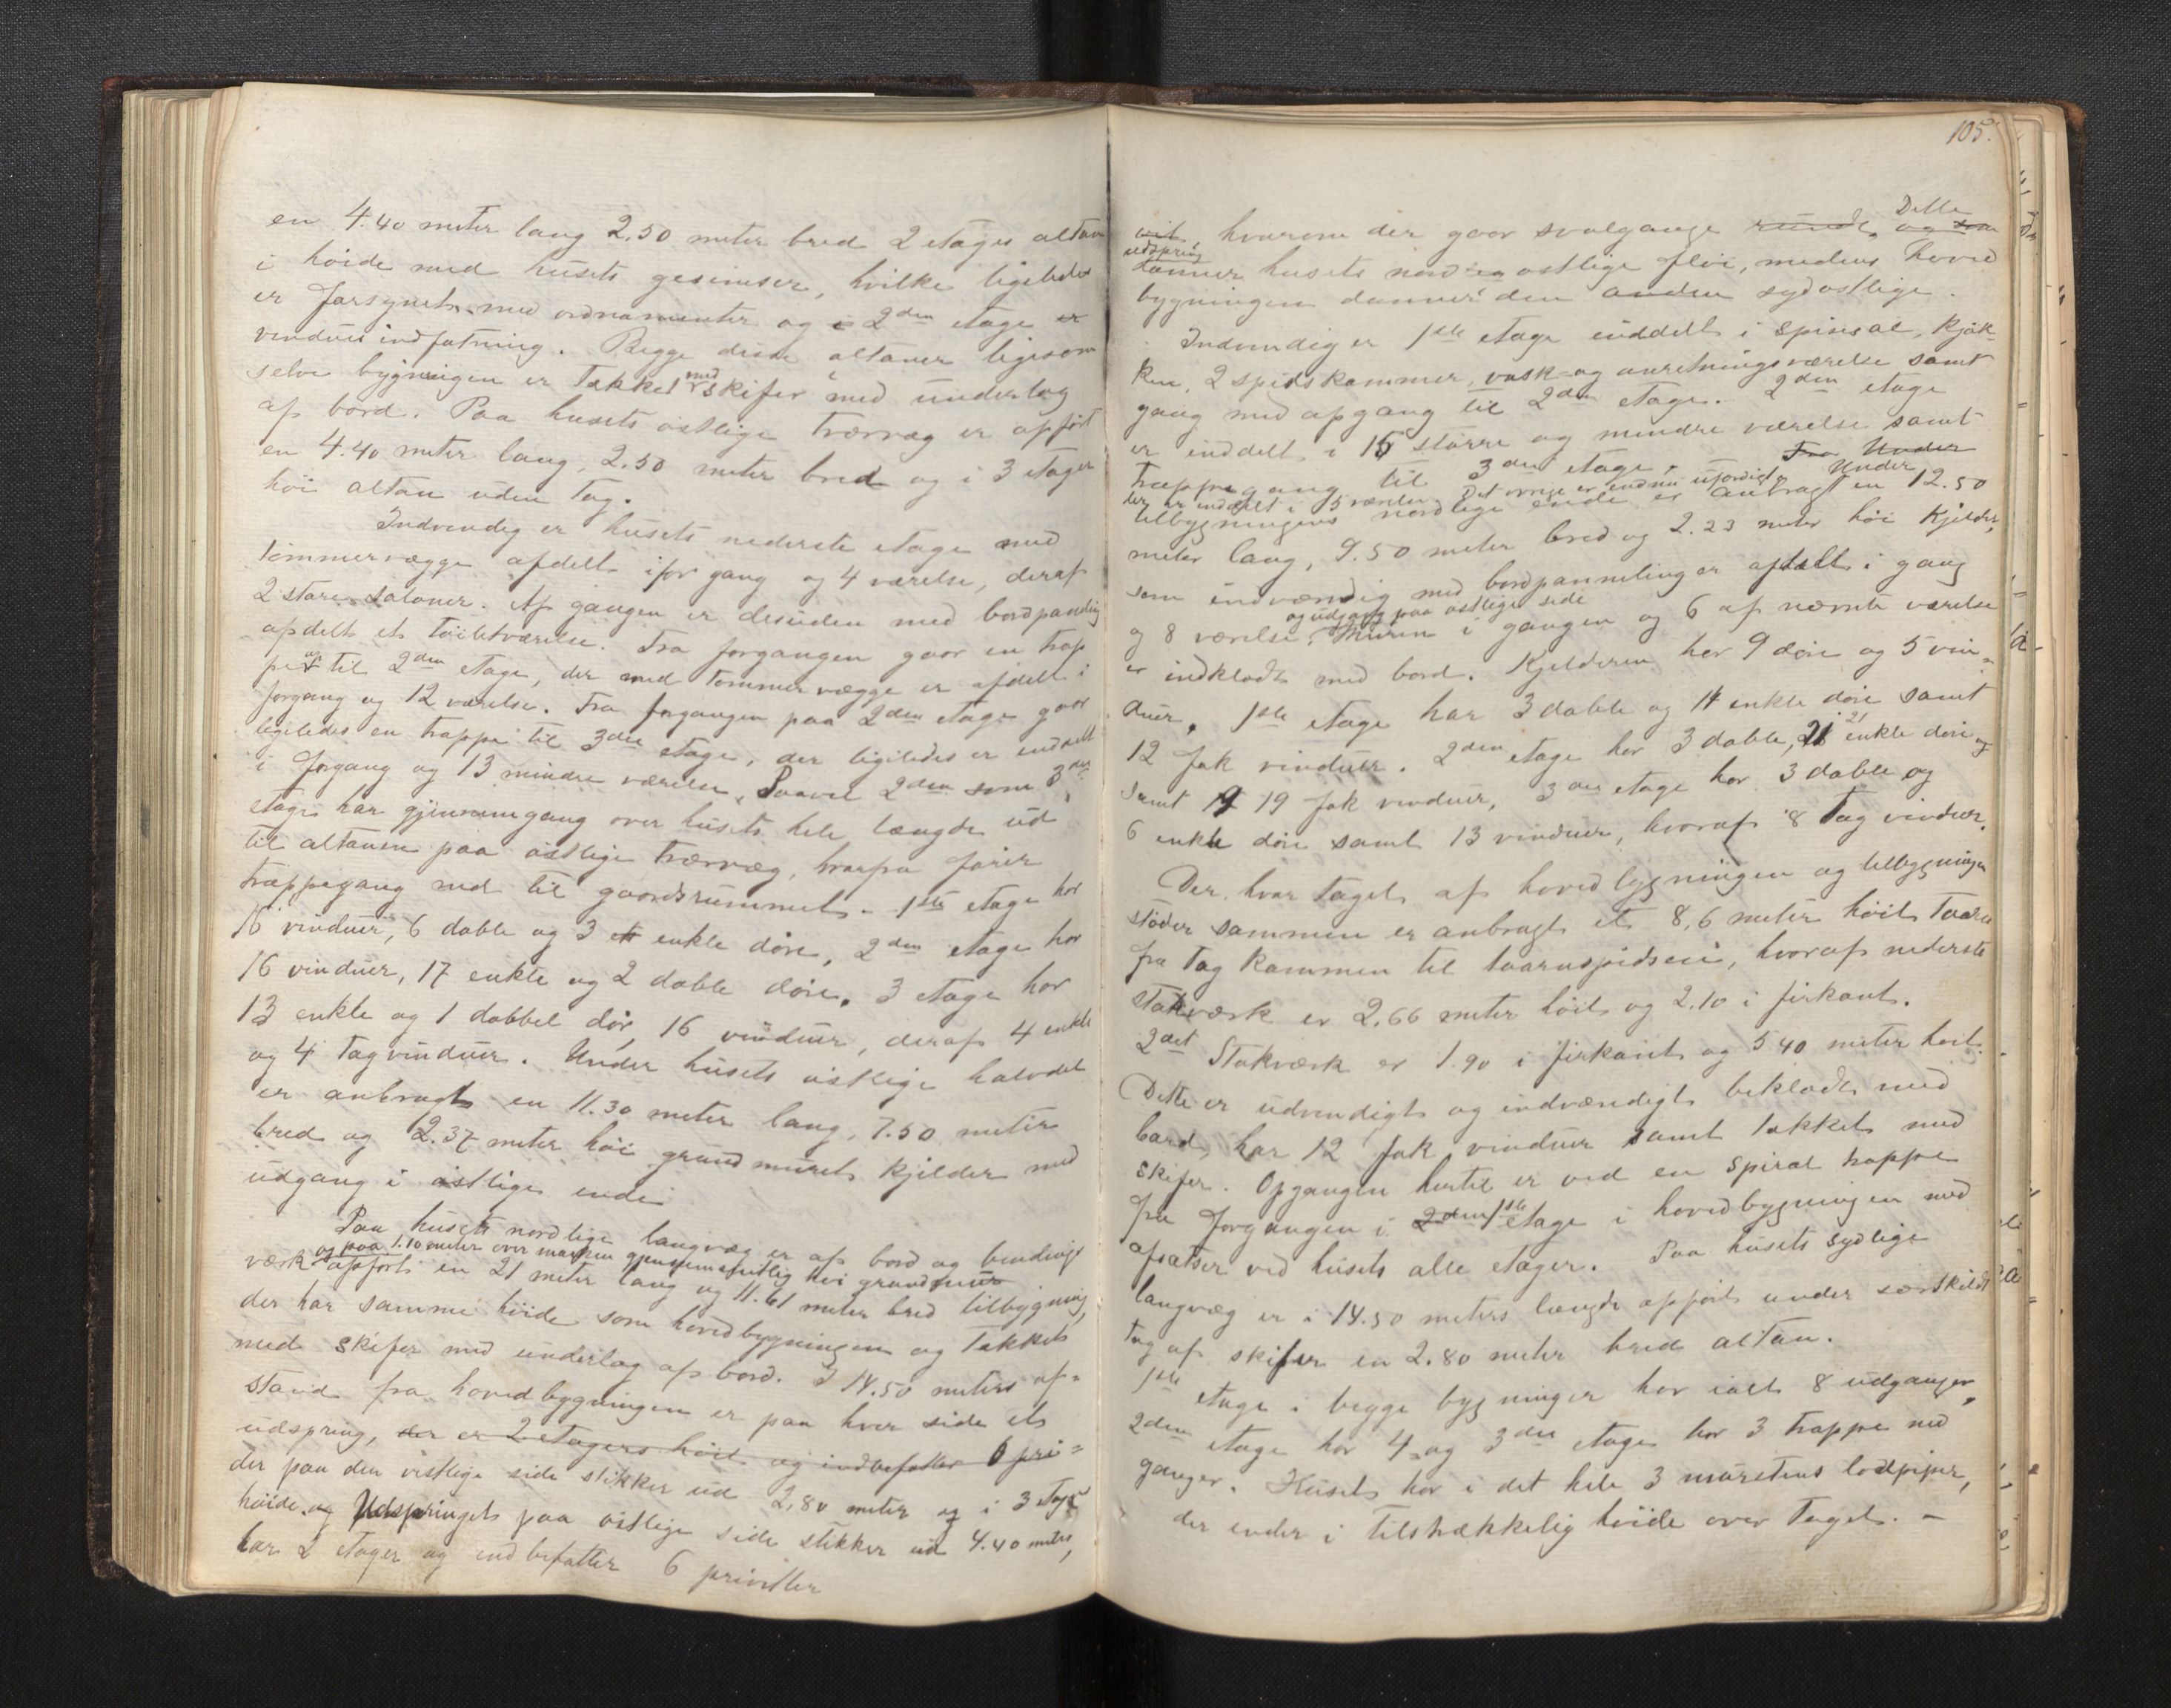 en 4.40 meter lang 2.50 meter bred 2 etages altan
i høide med husets gesimser, hvilke ligeledes
er forsynet med ordnamenter og i 2den etage er
vindues indfatning. Begge disse altaner ligesom
selve bygningen er tækket med skifer med underlag
af bord. Paa husets østlige tværvæg er opført
en 4.40 meter lang, 2.50 meter bred og i 3 etager
høi altan uden tag.
Indvendig er husets nederste etage med
tømmervægge afdelt i forgang og 4 værelse, deraf
2 store saloner. Af gangen er desuden med bordpaneling
afdelt et toiletværelse. Fra forgangen gaar en trap
pe op til 2den etage, der med tømmervægge er afdelt i
forgang og 12 værelse. Fra forgangen paa 2den etage gaar
ligeledes en trappe til 3die etage, der ligeledes er inddelt
i forgang og 13 mindre værelse. Saavel 2den som 3die
etage har gjennemgang over husets hele længde ud
til altanen paa østlige tværvæg, hvorfra fører
trappegang ned til gaardsrummet. - 1ste etage har
16 vinduer, 6 doble og 3 enkle døre, 2den etage har
16 vinduer, 17 enkle og 2 doble døre. 3 etage har
13 enkle og 1 dobbel dør, 16 vinduer, deraf 4 enkle
og 4 tagvinduer. Under husets østlige halvdel
er anbragt en 11.30 meter lang, 7.50 meter
bred og 2.37 meter høi grundmuret kjelder med
udgang i østlige ende.
Paa husets nordlige langvæg er af bord og bindings
og paa 1.10 meter over marken gjennemsnitlig høi grundmur
værk opført en 21 meter lang og 11.61 meter bred tilbygning,
der har samme høide som hovedbygningen og tækket
med skifer med underlag af bord. I 14.50 meters af-
stand fra hovedbygningen er paa hver side et
udspring, der er 2 etagers høit og indbefatter 6 pri=
der paa den vestlige side stikker ud 2,80 meter og i 3 etages
høide og Udspringet paa østlige side stikker ud 4.40 meter,
har 2 etager og indbefatter 6 priveter
105.
Dette
vet, hvorom der gaar svalgange rundt. og som
udspring
danner husets nord og østlige fløi, medens hoved
bygningen danner den anden sydøstlige.
Indvendig er 1ste etage inddelt i spisesal, kjøk-
ken, 2 spidskammer, vask- og anretningsværelse samt
gang med opgang til 2den etage. 2den etage
er inddelt i 15 større og mindre værelse samt
trappegang til 3die etage, Fra Under
der er inddelt i 5 værelse. Det øvrige er endnu ufærdigt. Under
tilbygningens nordlige ende er anbragt en 12.50
meter lang, 9.50 meter bred og 2.23 meter høi kjelder,
som indvændig med bordpanneling er afdelt i gang
og udgang paa østlige side
og 8 værelse. Muren i gangen og 6 af nævnte værelse
er indklædt med bord. Kjelderen har 9 døre og 5 vin=
duer. 1ste etage har 3 doble og 14 enkle døre samt
12 fak vinduer. 2den etage har 3 doble, 21 enkle døre og
samt 19 fak vinduer, 3die etage har 3 doble og
6 enkle døre samt 13 vinduer, hvoraf 8 tag vinduer.
Der, hvor taget af hovedbygningen og tilbygningen
støder sammen er anbragt et 8,6 meter høit taarn
fra tag kammen til taarnspidsen, hvoraf nederste
stokværk er 2.66 meter høit og 2.10 i firkant.
2det Stokværk er 1.90 i firkant og 5 40 meter høit.
Dette er udvendigt og indvændigt beklædt med
bord, har 12 fak vinduer samt tækket med
skifer. Opgangen hertil er ved en spiral trappe
fra forgangen i 2den 1ste etage i hovedbygningen med
afsatser ved husets alle etager. Paa husets sydlige
langvæg er i 14.50 meters længde opført under særskildt
tag af skifer en 2.80 meter bred altan.
1ste etage i begge bygninger har ialt 8 udganger,
2den etage har 4 og 3die etage har 3 trappe ned
ganger. Huset har i det hele 3 murstens lodpiper,
der ender i tilstrækkelig høide over taget. -